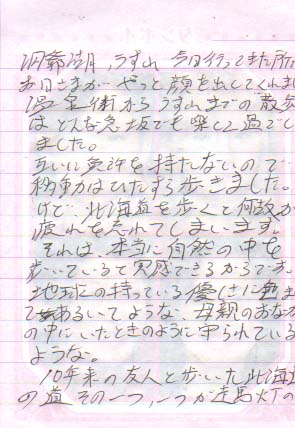 洞爺湖、うすれ 今日行ってきた所
お日さまが やっと顔を出してくれま
温泉街から うすれまでの散歩
は どんな急坂でも楽しく過ごし
ました。
互いに免許を持たないので
移動はひたすら歩きました。
けど、北海道を歩くと何故か
疲れを忘れてしまいます。
それは、本当に自然の中を
歩いていると実感できるからです。
地球の持っている優しさに包ま
てあるいてるような、母親のおなか
の中にいたときのように守られている
ような。
10年来の友人と歩いた北海道
の道 その一つ、一つが走馬灯の